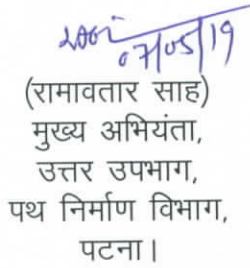 07/05/19
(रामावतार साह)
मुख्य अभियंता,
उत्तर उपभाग,
पथ निर्माण विभाग,
पटना।